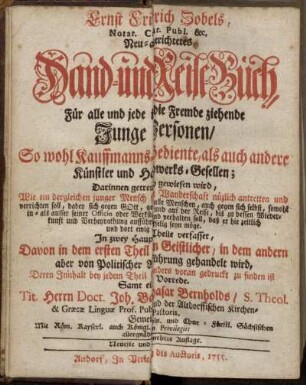 Ernst Fridrich Zobels,
Notar. Cæs. Publ. &c.
Neu-gerichtetes
Hand-und Reise-Buch,
Für alle und jede die Fremde ziehende
Junge Personen/
So wohl Kauffmanns-Bediente, als auch andere
Künstler und Handwercks-Gesellen;
Darinnen gewiesen wird,
Wie ein dergleichen junger Mensch Wanderschafft nützlich antretten und
verrichten soll, daher sich gegen GOtt, alle Menschen, auch gegen sich selbst, sowohl
in- als ausser seiner Officin oder auf der Reise, biß zu dessen Wieder-
kunfft und verhalten soll, daß er hie zeitlich
und dort ewig seelig seyn möge.
In zwey Haupt-Theile verfasset,
Davon in dem ersten Theil Geistlicher, in dem andern
aber von Politischer Aufführung gehandelt wird,
Deren Innhalt bey jedem Theil voran gedruckt zu finden ist
Samt Vorrede.
Tit. Herrn Doct. Joh. Balthasar Bernholds/ S. Theol.
& Græcæ Linguæ Prof. Publ. und der Altdorffischen Kirchen-
Pastoris.
Mit Röm. Kayserl. auch Königl. und Chur-Fürstl. Sächsischen
Privilegiis
Auflage.
Altdorf, In Verlag des Auctoris, 1755.